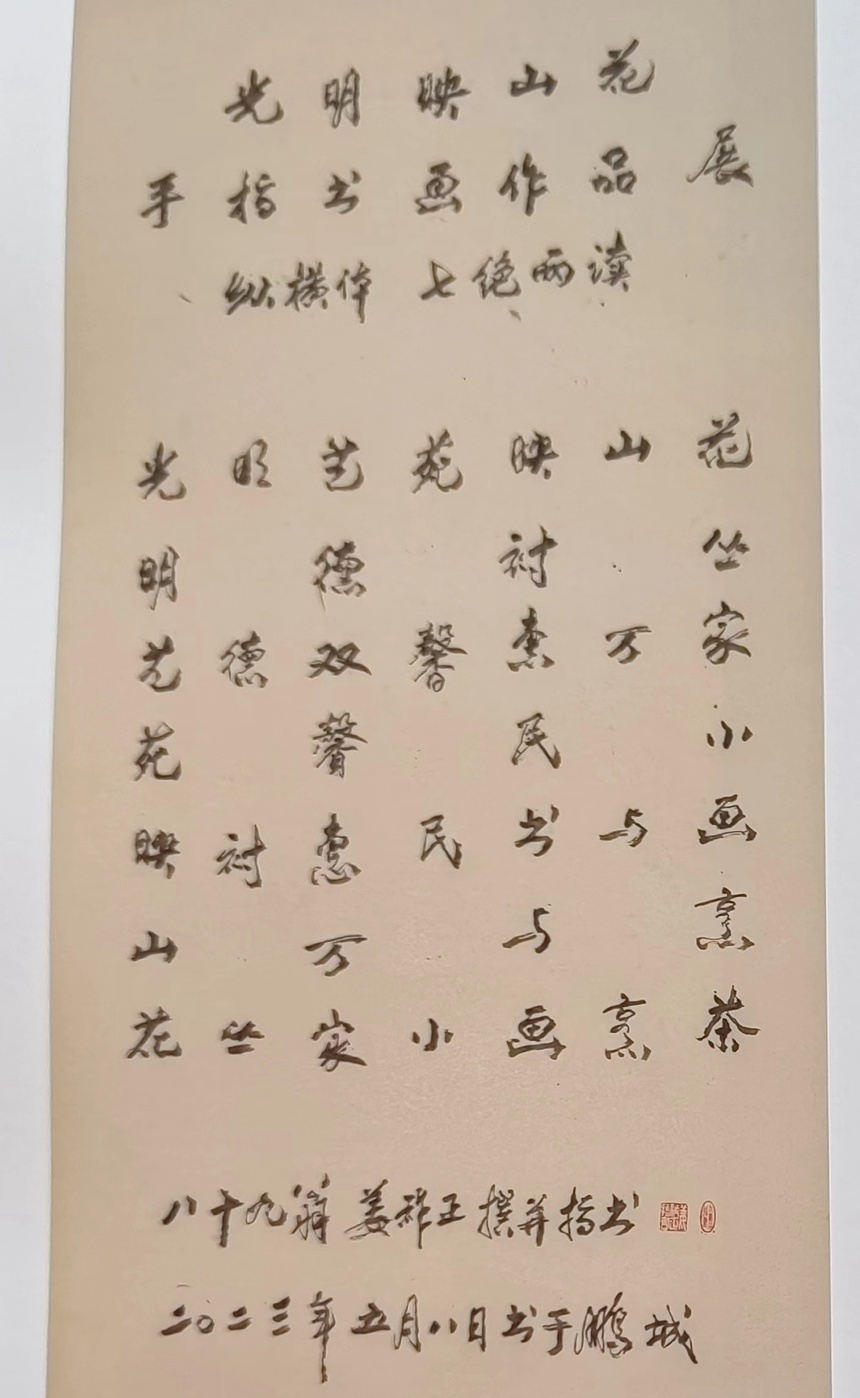 光明映山花
手指书画作品展
纵横体七绝两读
光明艺苑映山花
明德衬丛
艺德双馨惠万家
苑馨民小
映衬惠民书与画
山万与烹
花丛家小画烹茶
八十九翁姜祚正撰并指书
二〇二三年五月八日书于鹏城